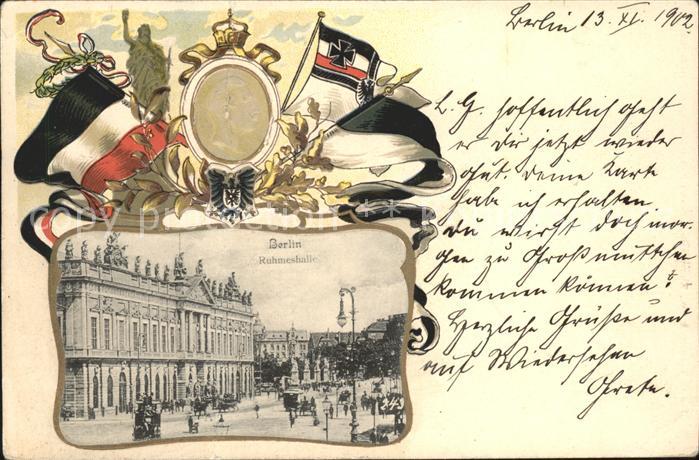 Berlin 13. XI. 1902
L. G. hoffentlich geht
es Dir jetzt wieder
gut. Deine Karte
habe ich erhalten
Du wirst doch mor-
gen zu Großmuttchen
kommen können?
Herzliche Grüße und
auf Wiedersehen
Grete.
Berlin
Ruhmeshalle